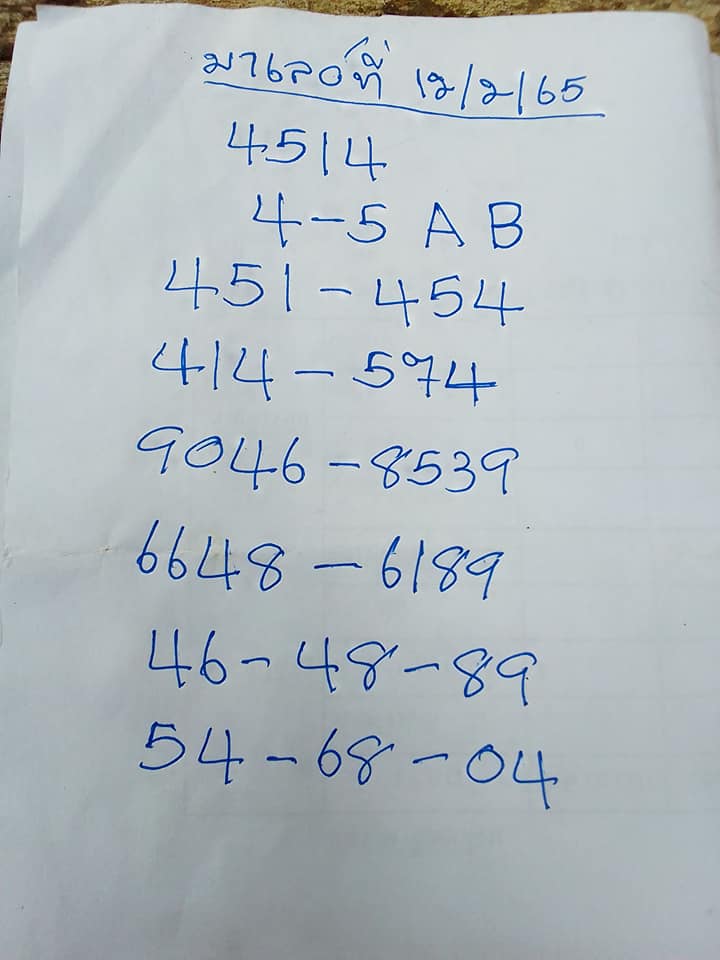 มาเลย์ที่ 12/2/65
4514
4-5 A B
451-454
414-574
9046-8539
6648-6189
46-48-89
54-68-04